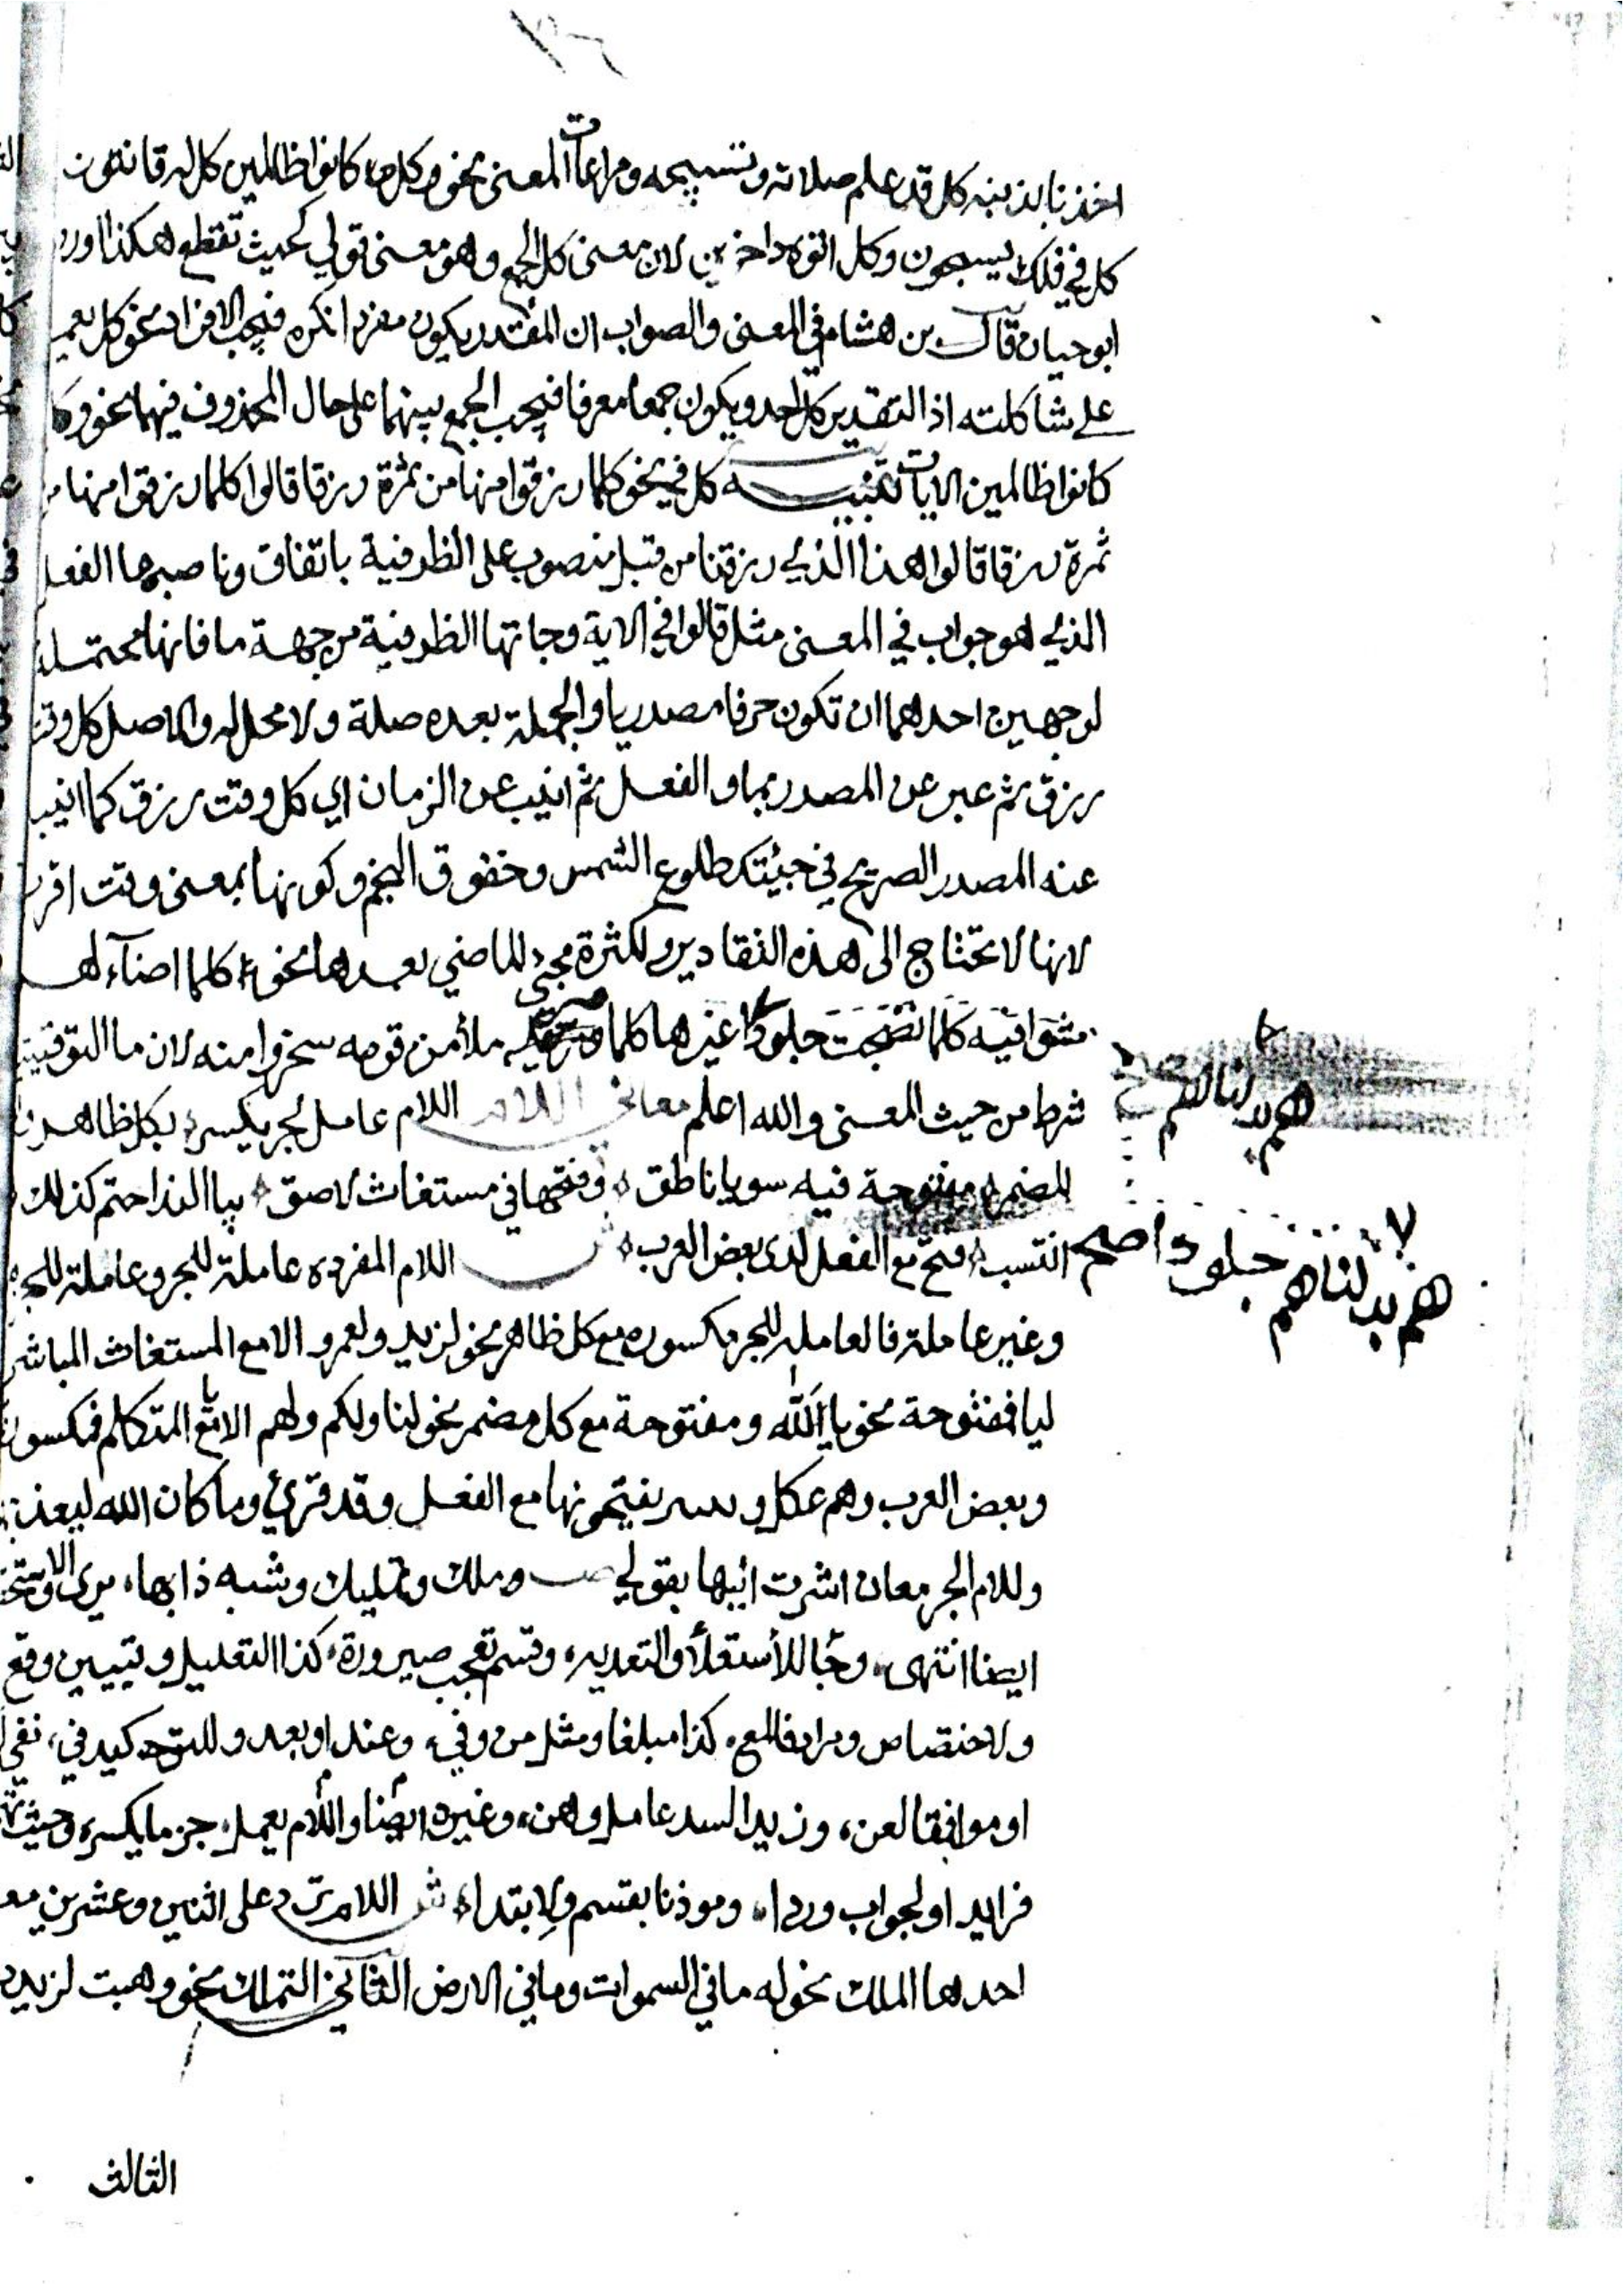 اخذنا بذنبه كل قد علم صلاته وتسبيحه ومراعات المعنى نحو وكل كانوا ظالمين كل له قانتون
كل في فلك يسبحون وكل اتوه داخرين لان معنى كل الجمع وهو معنى قولي بحيث تقطع هكذا اورد
ابو حيان قال بن هشام في المعنى والصواب ان المقدر يكون مفردا نكره فيجب الافراد نحو كل يعمل
على شاكلته اذ التقدير كل احد ويكون جمعا معرفا فيجب الجمع بينهما على حال المحذوف فيهما نحو وكل
كانوا ظالمين الايات تنبيه كل في نحو كلما رزقوا منها من ثمرة رزقا قالوا كلما رزقوا منها من
ثمرة رزقا قالوا هذا الذي رزقنا من قبل منصوب على الظرفية باتفاق وناصبها الفعل
الذي هو جواب في المعنى مثل قالوا في الاية وجاتها الظرفية من جهة ما فانها محتملة
لوجهين احدهما ان تكون حرفا مصدريا والجملة بعده صلة ولا محل له والاصل كل وقت
رزق ثم عبر عن المصدر بما والفعل ثم انيب عن الزمان اي كل وقت رزق كما انيب
عنه المصدر الصريح في جيئتك طلوع الشمس وخفوق النجم وكونها بمعنى وقت اقرب
لانها لا تحتاج الى هذه التقادير ولكثرة مجئ الماضي بعدها نحو كلما اضآء لهم
مشوا فيه كلما نضجت جلودا غيرها كلما مر عليه ملأ من قومه سخروا منه لان ما التوقيتية
شرط من حيث المعنى والله اعلم معاني اللام اللام عامل لجر يكسر بكل ظاهر
للمضمر مفتوحة فيه سويا ناطق وفتحها في مستغاث لاصق بيا الندا حتم كذلك
انتسب فتح مع الفعل لدى بعض العرب ش اللام المفرده عاملة للجر وعاملة للجزم
وغير عاملة فالعامله للجر مكسوره مع كل ظاهر نحو لزيد ولعمرو الا مع المستغاث المباشر
ليا فمفتوحة نحو يا لَلّه ومفتوحة مع كل مضمر نحو لنا ولكم ولهم الا مع يا المتكلم فمكسورة
وبعض العرب وهم عكل و يفتحونها مع الفعل وقد قرئ وما كان الله ليعذبهم
وللام الجر معان اشرت اليها بقولي ص وملك وتمليك وشبه ذا بها
ايضا انتهى وجا للأستعلأ والتعديه وقسم تعجب صيرورة كذا التعليل وتبيين وقع
ولاختصاص ومرادفا لمع كذا مبلغا ومثل من وفي وعند او بعد وللتوكيد في نفي
او موافقا لعن وغيره ايضا واللام يعمل جزما يكسر وحيث
فزايد او لجواب وردا وموذنا بقسم ولابتداء ش اللام ترد على اثنين وعشرين معنى
احدها الملك نحو له ما في السموات وما في الارض الثاني التملك نحو وهبت لزيد
الثالث
هم بدلناهم
هم بدلناهم جلودا صح